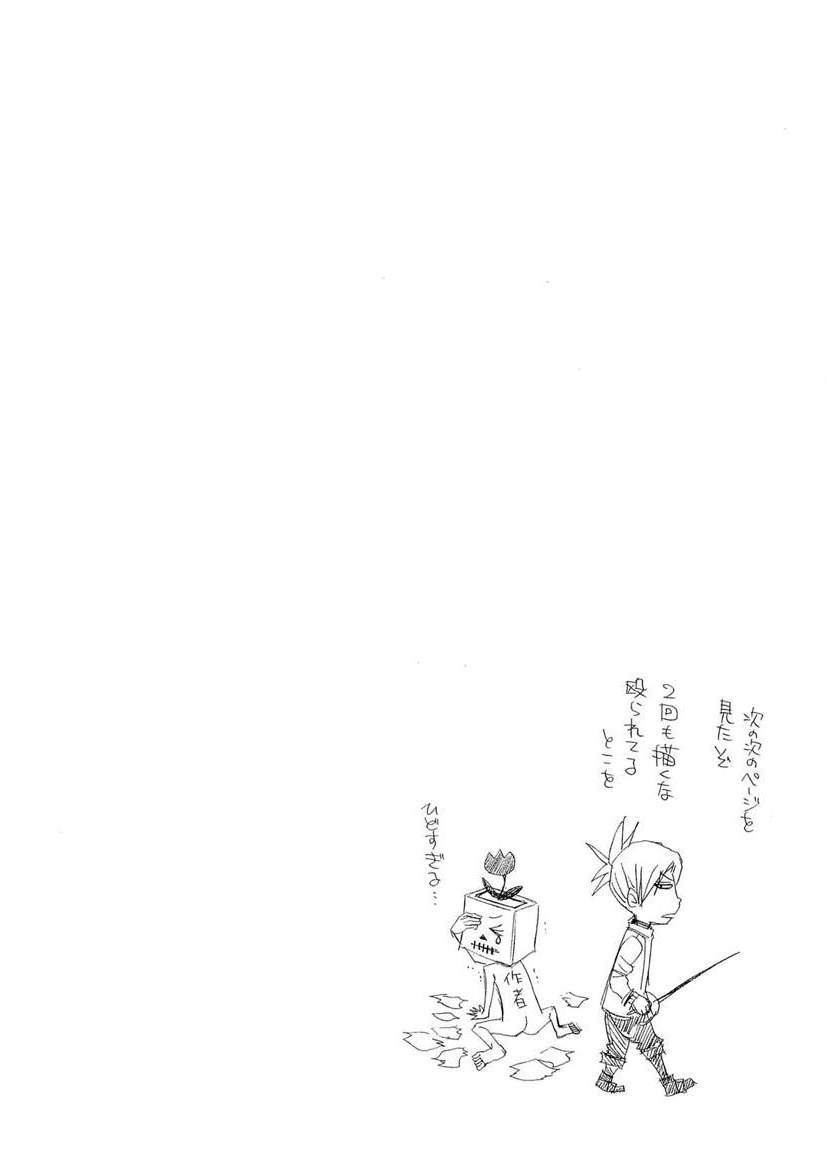 次の次のページを
見たいぞ
2回も描くな
殴られてる
とこを
ひどすぎる…
作者